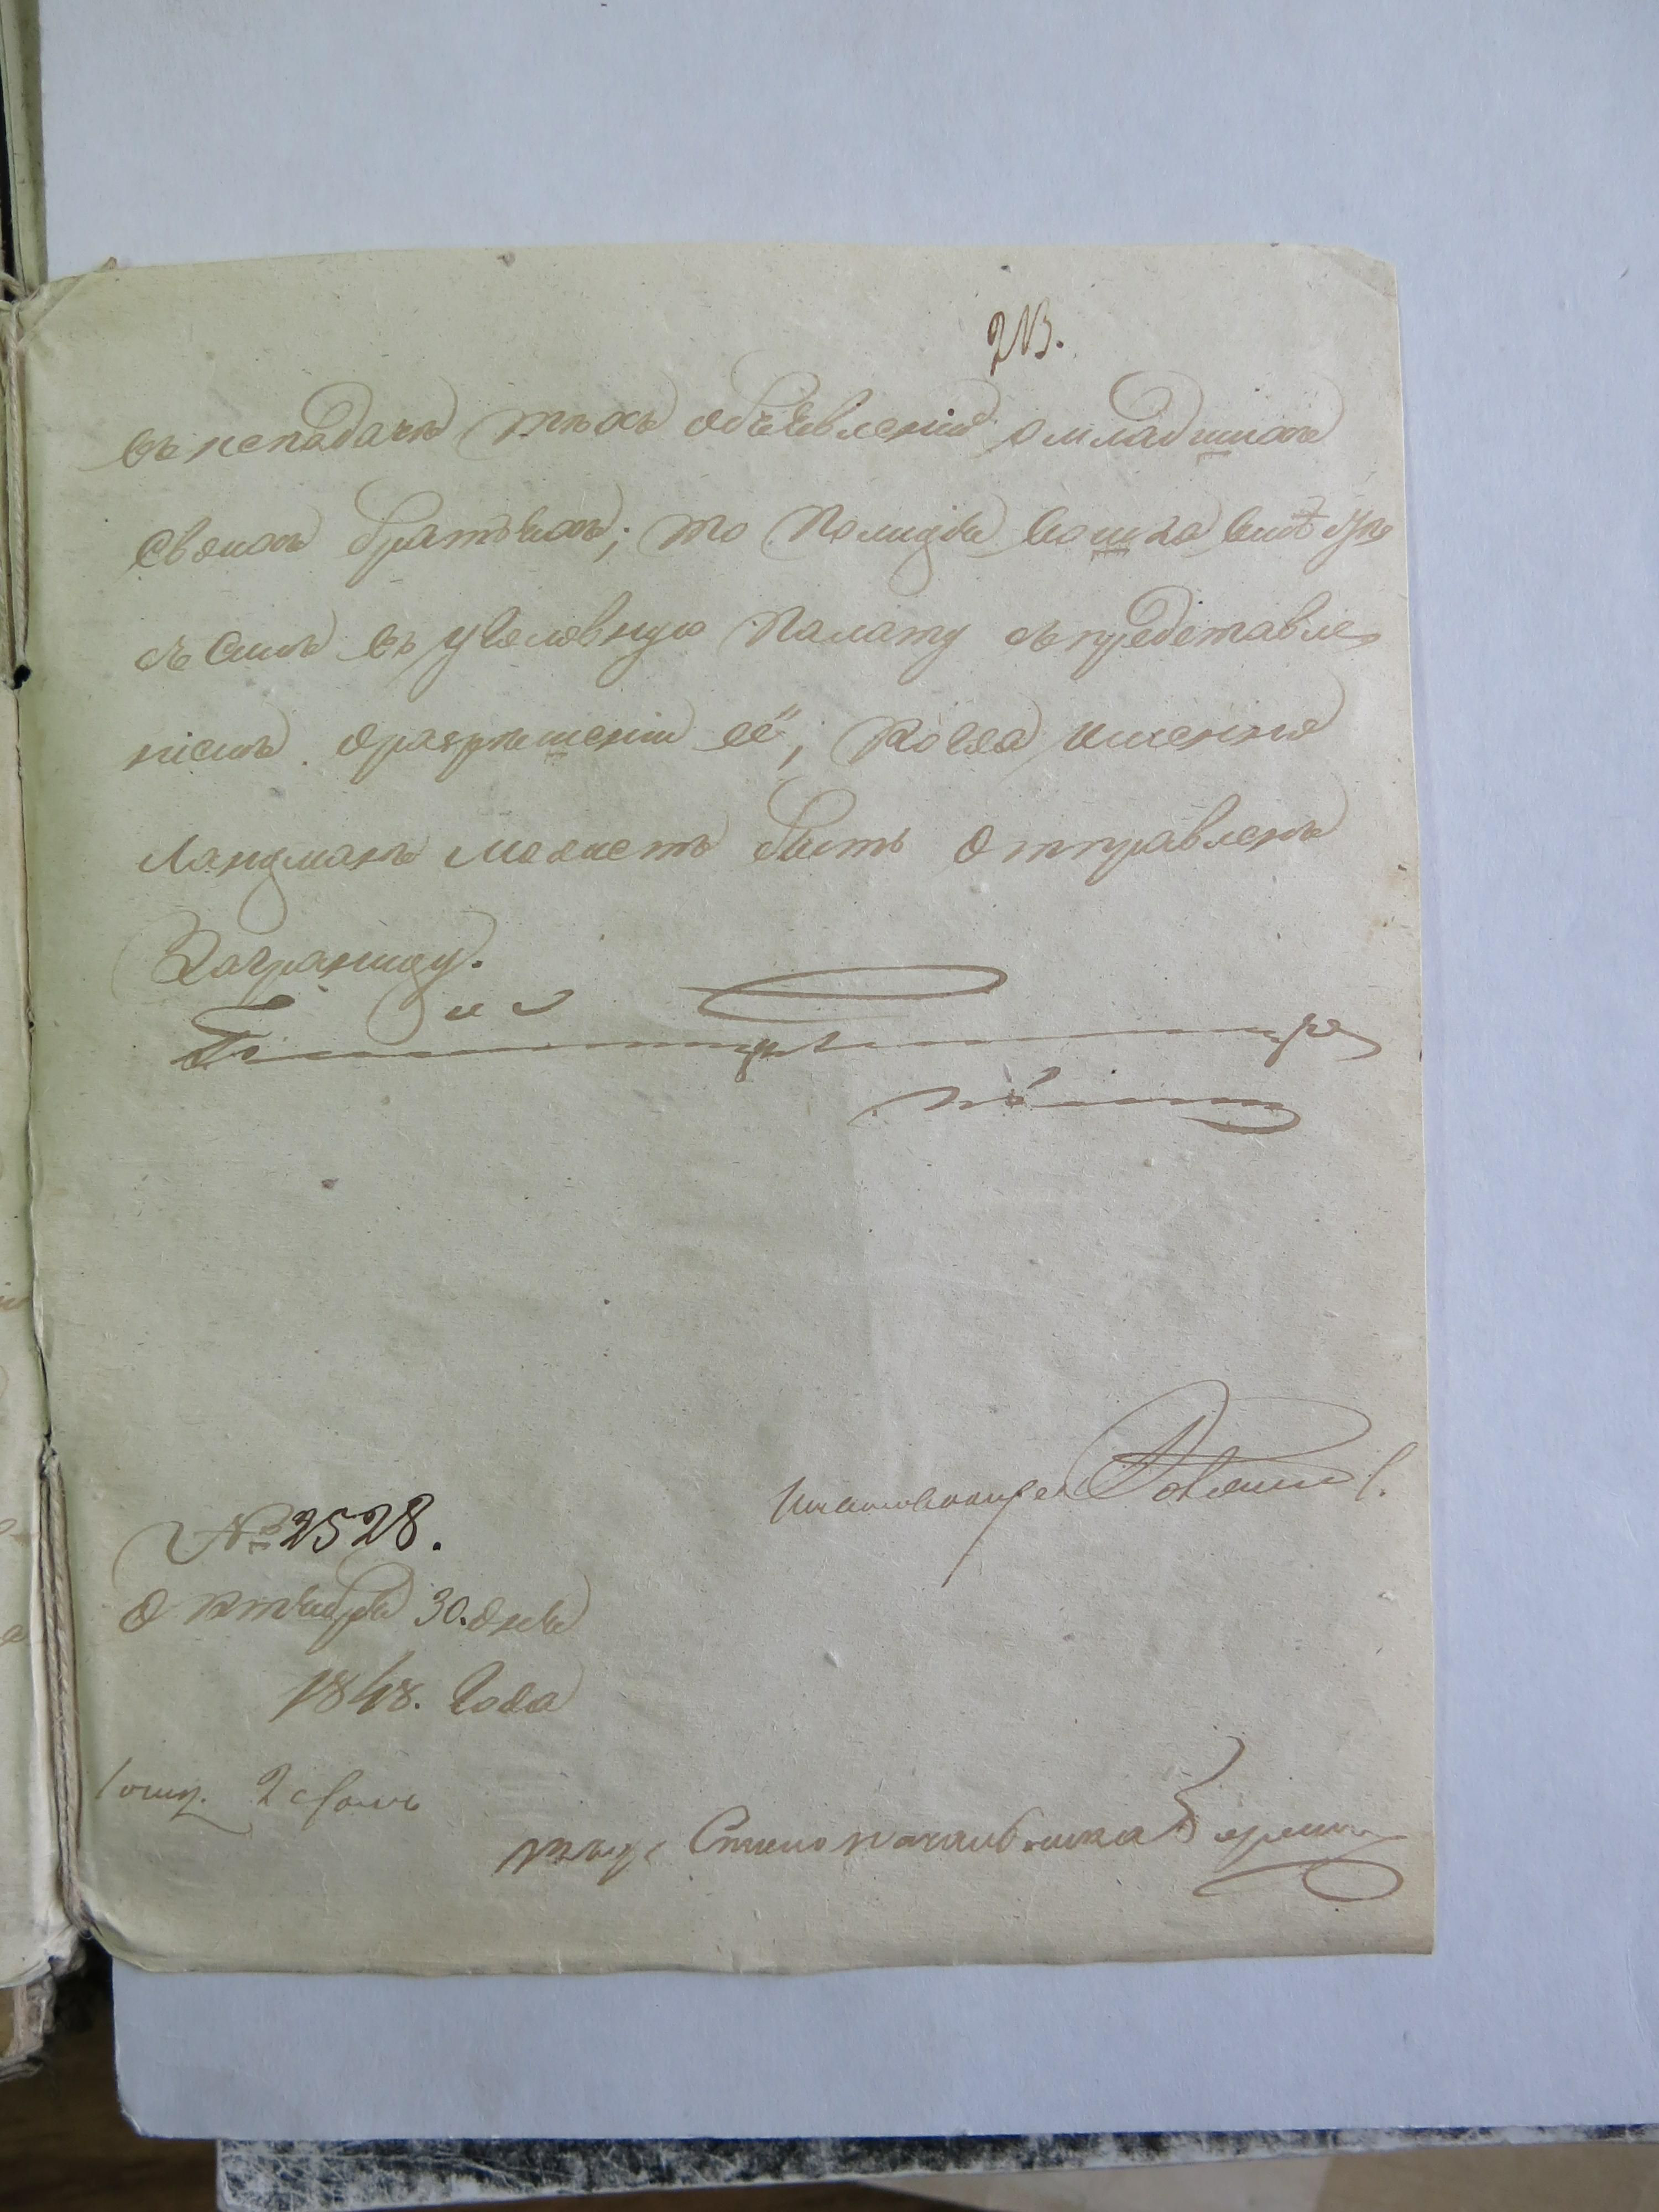 213.
въ неподачѣ тѣхъ объявленій о младшихъ
своихъ братьяхъ; то Полиція вошла вмѣстѣ
съ симъ въ уголовную Палату съ представле
ніемъ о разрѣшеніи её, когда именно
Ланцманъ можетъ быть отправленъ
Заграницу.
№ 2528.
Октября 30. дня
1848. Года
Столоначальника